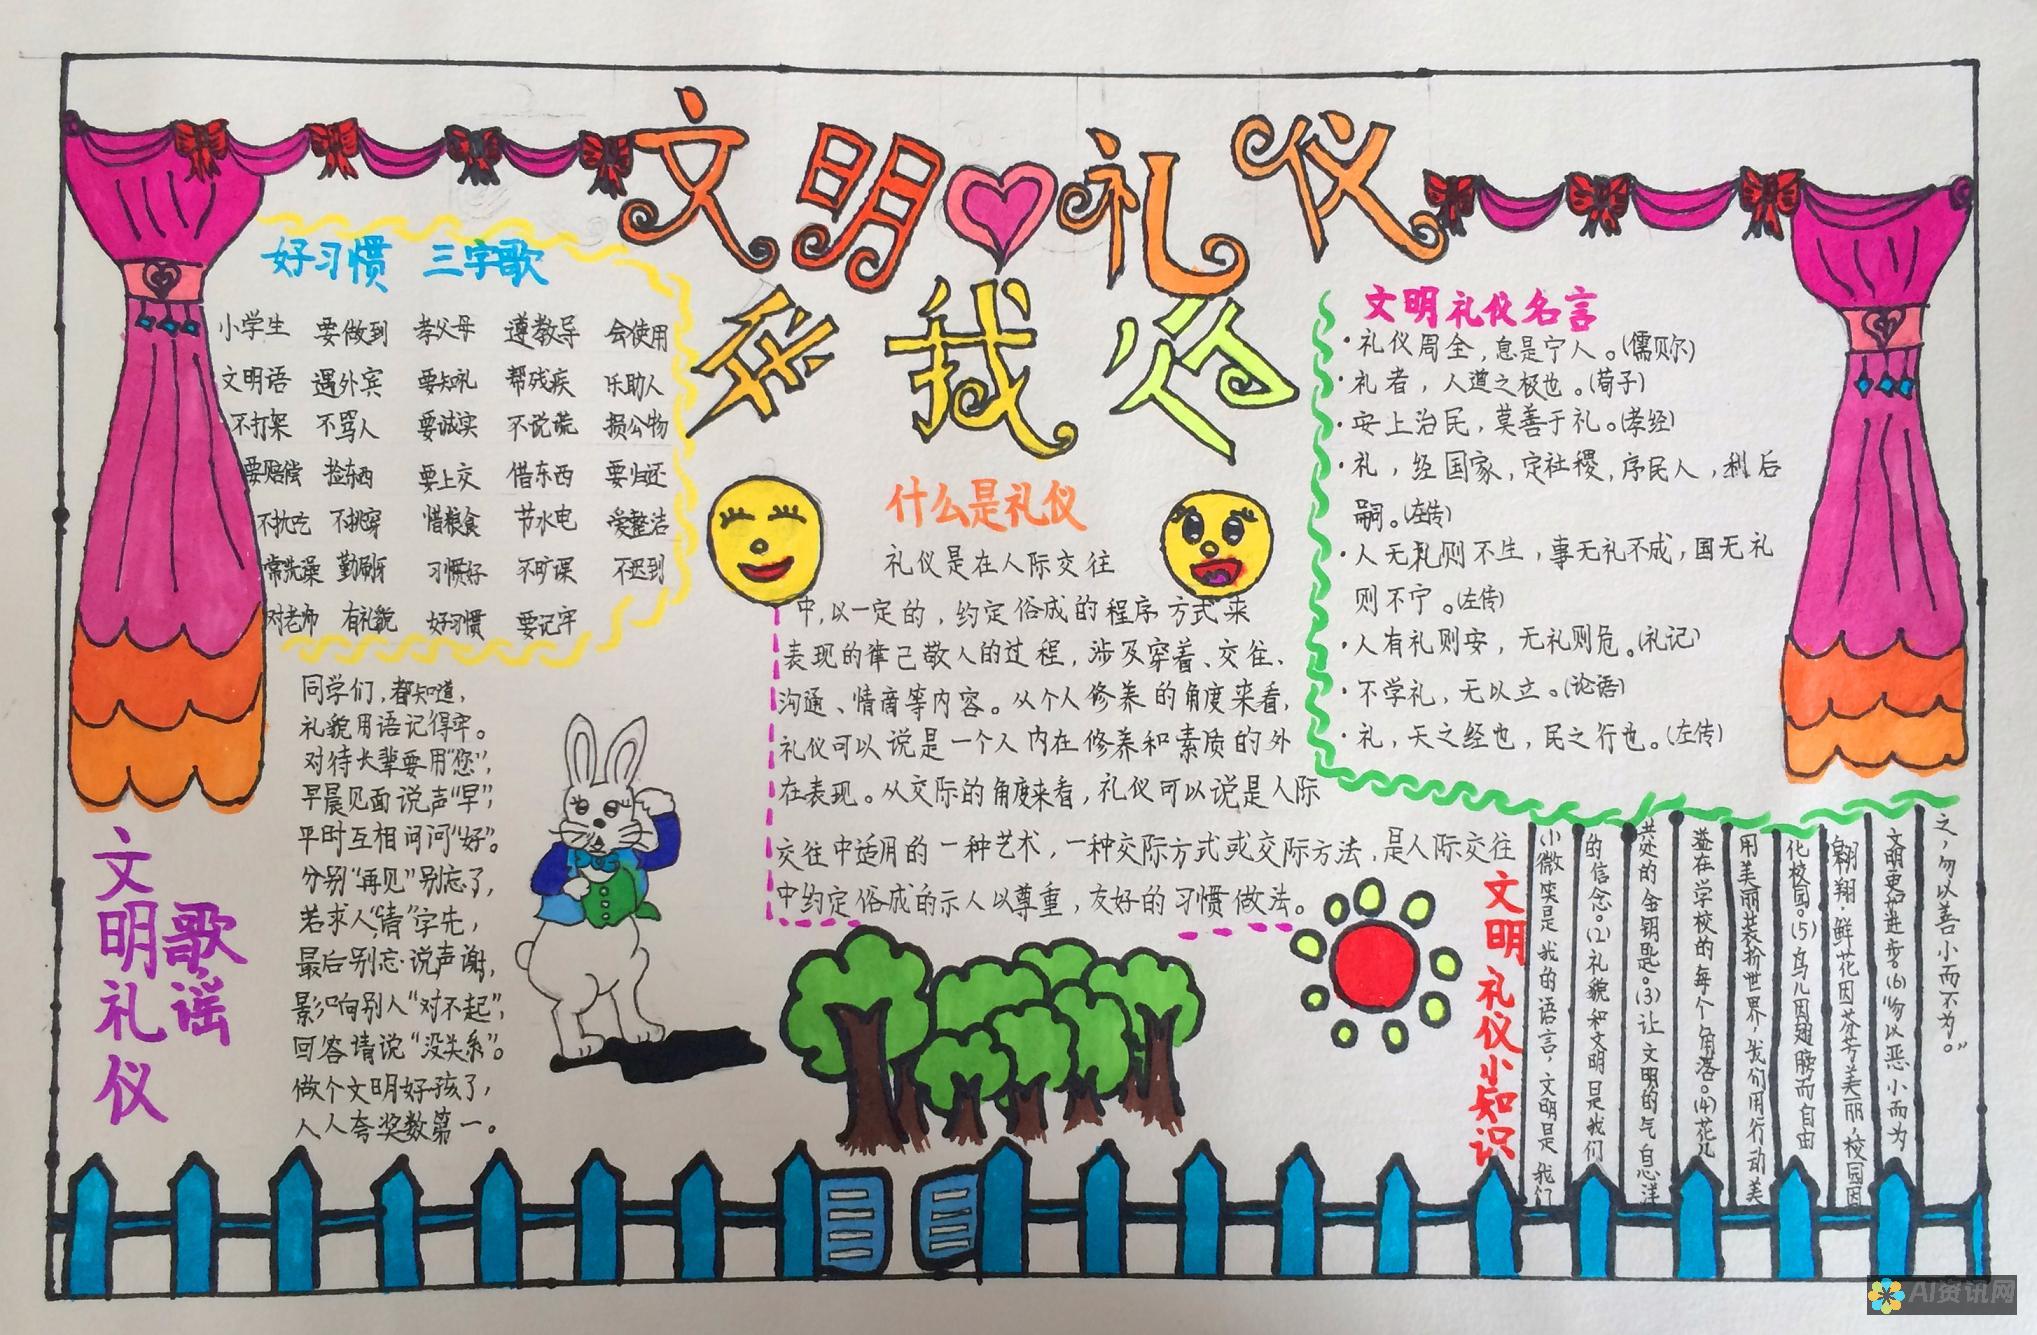 文明礼仪
伴我行
好习惯 三字歌
小学生 要做到 孝父母 遵教导 会使用
文明语 遇外宾 要知礼 帮残疾 乐助人
不打架 不骂人 要诚实 不说谎 损公物
要赔偿 捡东西 要上交 借东西 要归还
不抗吃 不挑穿 惜粮食 节水电 爱整洁
常洗澡 勤刷牙 习惯好 不旷课 不迟到
对老师 有礼貌 好习惯 要记牢
同学们，都知道，
礼貌用语记得牢。
对待长辈要用“您”，
早晨见面说声“早”，
平时互相问问“好”。
分别“再见”别忘了，
若求人“请”字先，
最后别忘说声谢，
影响别人“对不起”，
回答请说“没关系”。
做个文明好孩了，
人人夸奖数第一。
文明礼仪
歌谣
什么是礼仪
礼仪是在人际交往
中，以一定的，约定俗成的程序方式来
表现的律己敬人的过程，涉及穿着、交往、
沟通、情商等内容。从个人修养的角度来看，
礼仪可以说是一个人内在修养和素质的外
在表现。从交际的角度来看，礼仪可以说是人际
交往中适用的一种艺术，一种交际方式或交际方法，是人际交往
中约定俗成的示人以尊重，友好的习惯做法。
文明礼仪名言
·礼仪周全，息是宁人。(儒贝尔)
·礼者，人道之极也。(荀子)
·安上治民，莫善于礼。(孝经)
·礼，经国家，定社稷，序民人，利后
嗣。(左传)
·人无礼则不生，事无礼不成，国无礼
则不宁。(左传)
·人有礼则安，无礼则危。(礼记)
·不学礼，无以立。(论语)
·礼，天之经也，民之行也。(左传)
文明礼仪小知识
小微笑是我的语言，文明是我们
的信念。(2)礼貌和文明是我们
共处的金钥匙。(3)让文明的气息洋
溢在学校的每个角落。(4)花儿
用美丽装扮世界，我们用行动美
化校园。(5)鸟儿因翅膀而自由
翱翔，鲜花因芬芳美丽，校园因
文明更加进步。(6)“勿以恶小而为
之，勿以善小而不为。”
AI资讯网